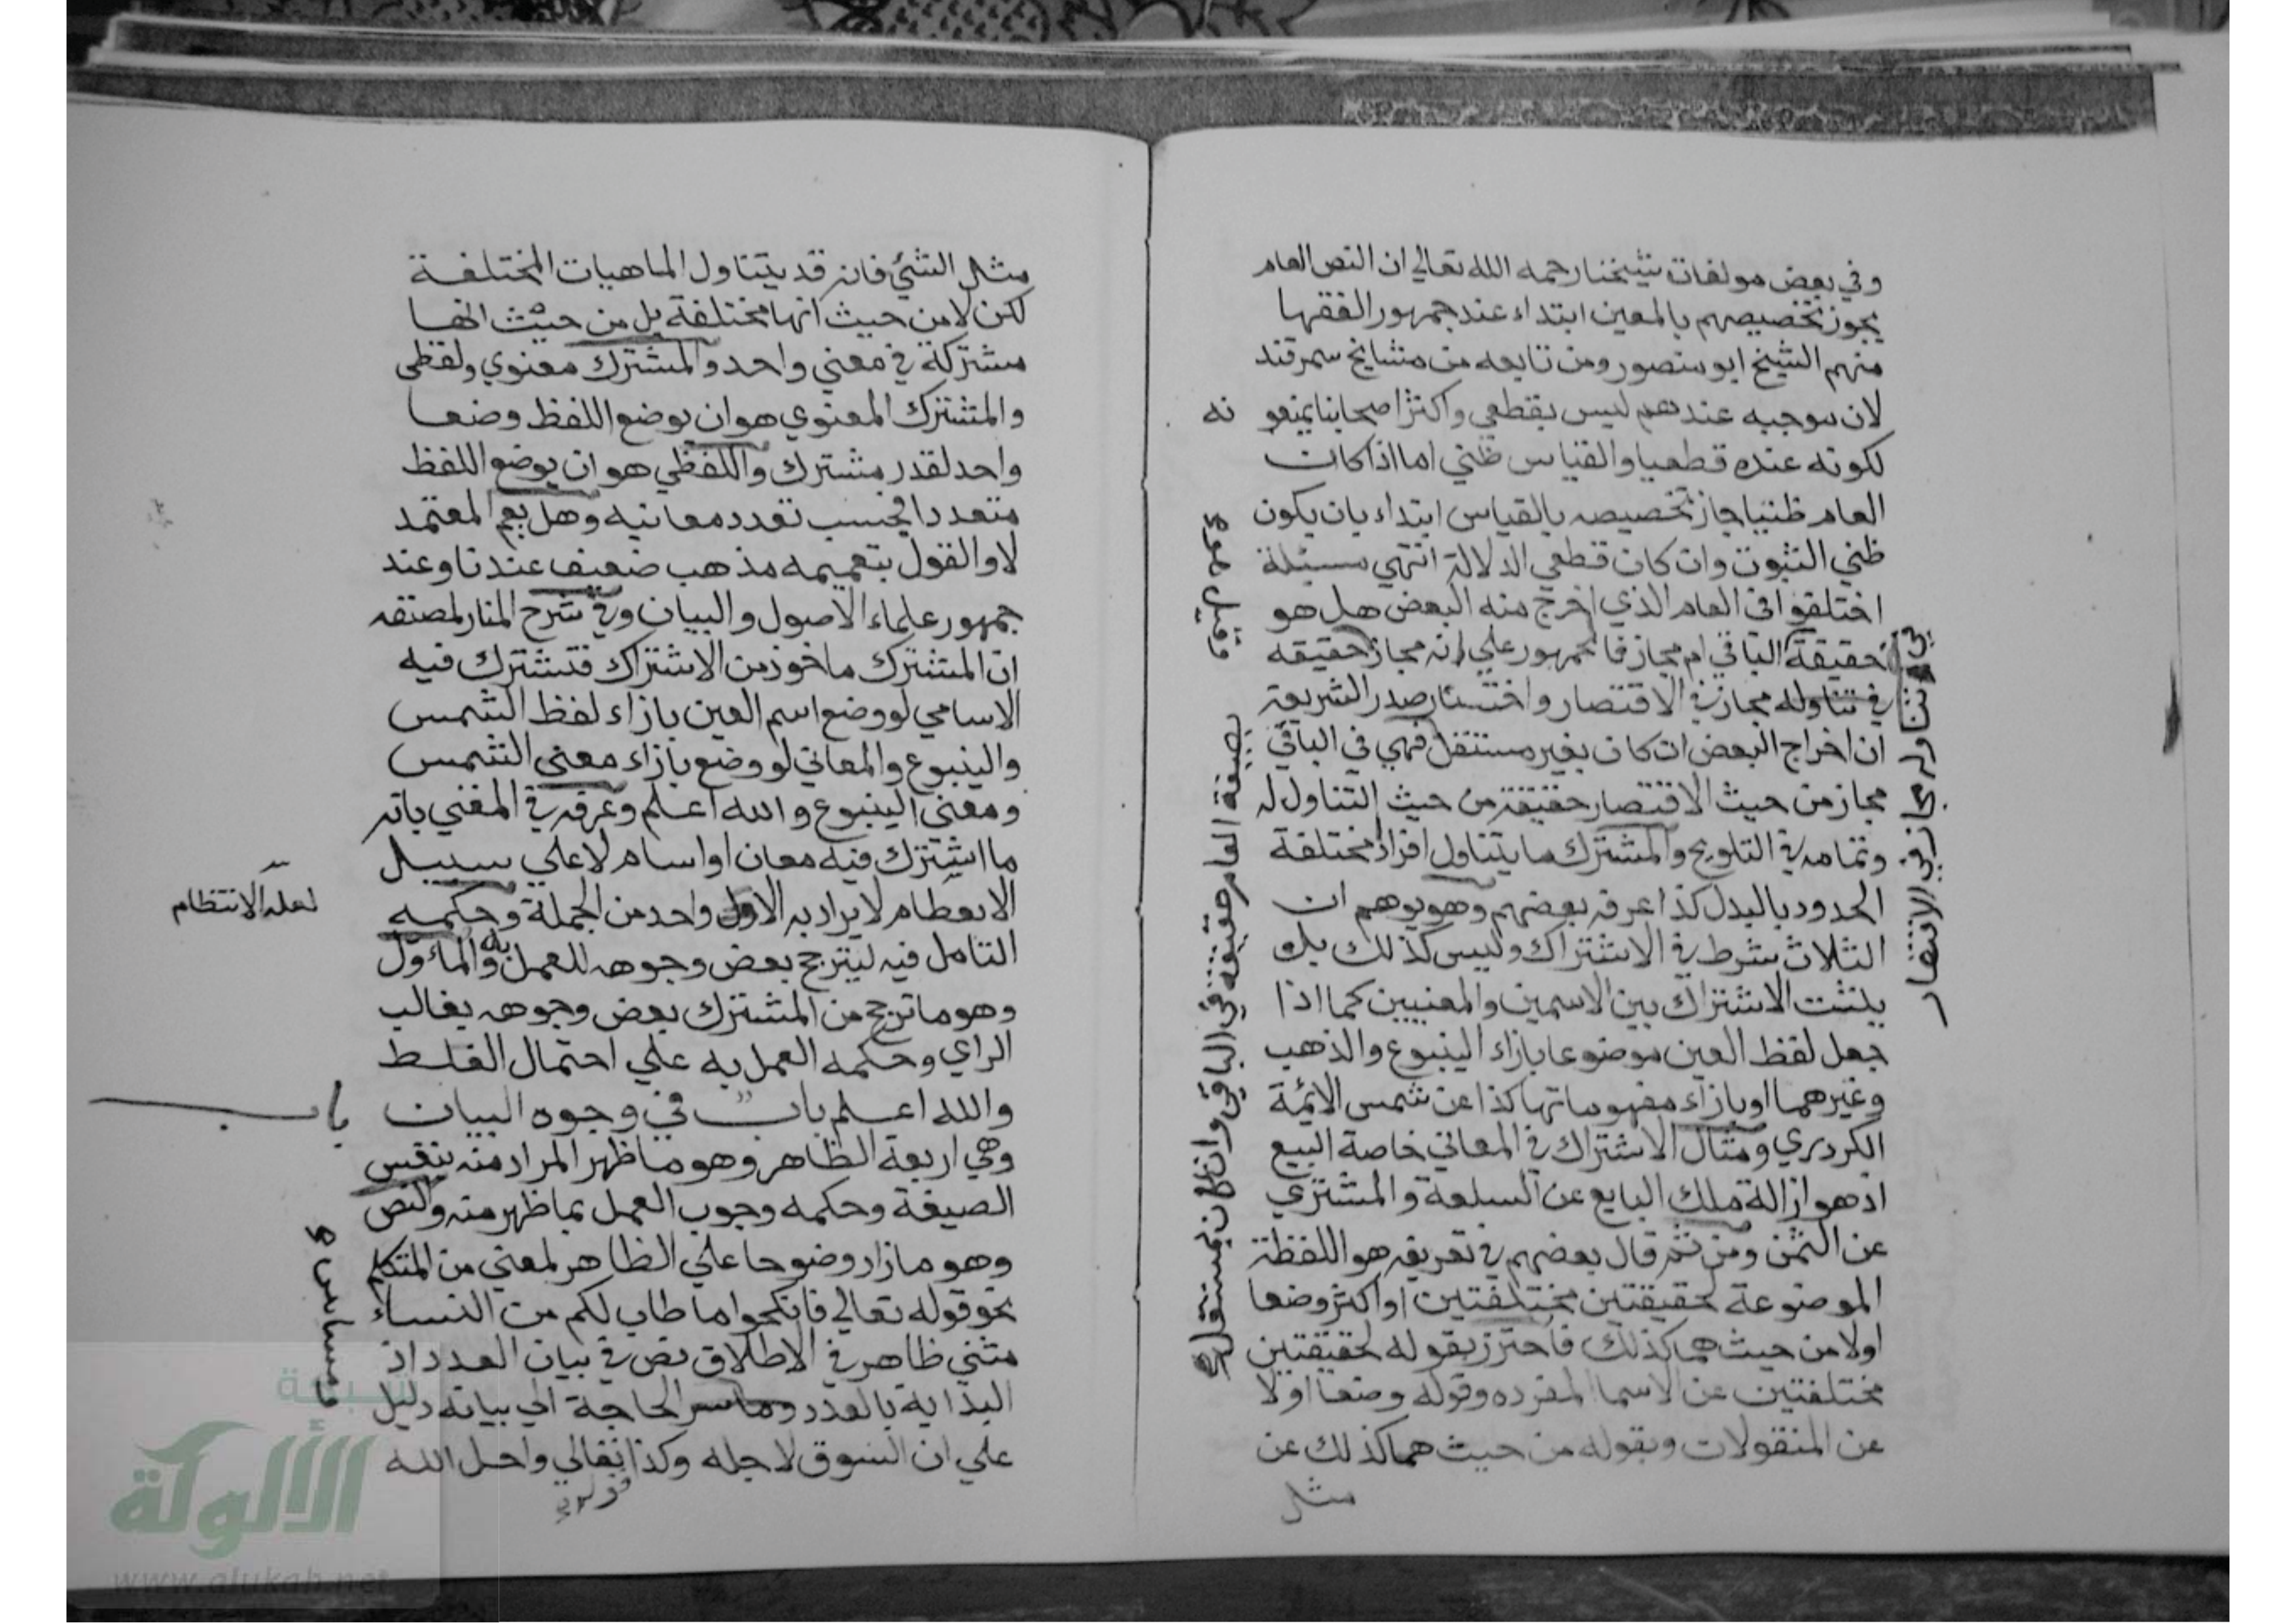 وفي بعض مولفات شيخنا رحمه الله تعالي ان النص العام
يجوز تخصيصهم بالمعين ابتداء عند جمهور الفقها
منهم الشيخ ابو منصور ومن تابعه من مشايخ سمرقند
لان موجبه عندهم ليس بقطعي واكثر اصحابنا يمنعو نه
لكونه عنده قطعيا والقياس ظني اما اذا كان
العام ظنيا جاز تخصيصه بالقياس ابتداء بان يكون
ظني الثبوت وان كان قطعي الدلالة انتهي مسئلة
اختلفوا في العام الذي اخرج منه البعض هل هو
حقيقة الباقي ام مجاز فالجمهور علي انه مجاز حقيقه
في تناوله مجاز في الاقتصار واختار صدر الشريعة
ان اخراج البعض ان كان بغير مستقل فهي في الباقي
مجاز من حيث الاقتصار حقيقة من حيث التناول له
وتمامه في التلويح والمشترك ما يتناول افرادا مختلفة
الحدود بالبدل كذا عرفه بعضهم وهو يوهم ان
الثلاث شرط في الاشتراك وليس كذلك بل
يثبت الاشتراك بين الاسمين والمعنيين كما اذا
جعل لفظ العين موضوعا بازاء الينبوع والذهب
وغيرهما او بازاء مفهوماتها كذا عن شمس الائمة
الكردري ومثال الاشتراك في المعاني خاصة البيع
اذ هو ازالة ملك البايع عن السلعة والمشتري
عن الثمن ومن ثم قال بعضهم في تعريفه هو اللفظة
الموضوعة لحقيقتين مختلفتين او اكثر وضعا
اولا من حيث هما كذلك فاحترز بقوله لحقيقتين
مختلفتين عن الاسما المفرده وقوله وضعا اولا
عن المنقولات وبقوله من حيث هما كذلك عن
مثل
في تناوله مجاز في الاقتصار
بصيغة العام حقيقة في الباقي وان كان بمستقل
مثل الشئ فانه قد يتناول الماهيات المختلفة
لكن لا من حيث انها مختلفة بل من حيث انها
مشتركة في معني واحد والمشترك معنوي ولفظي
والمشترك المعنوي هو ان يوضع اللفظ وضعا
واحد لقدر مشترك واللفظي هو ان يوضع اللفظ
متعددا بحسب تعدد معانيه وهل يعم المعتمد
لا والقول بتعميمه مذهب ضعيف عندنا وعند
جمهور علماء الاصول والبيان وفي شرح المنار لمصنفه
ان المشترك ماخوذ من الاشتراك فتشترك فيه
الاسامي لو وضع اسم العين بازاء لفظ الشمس
والينبوع والمعاني لو وضع بازاء معني الشمس
ومعني الينبوع والله اعلم وعرفه في المغني بانه
ما اشترك فيه معان او اسام لا علي سبيل
الانعظام لا يراد به الاول واحد من الجملة وحكمه
لعله الانتظام
التامل فيه ليترجح بعض وجوهه للعمل به والماءول
وهو ما ترجح من المشترك بعض وجوهه بغالب
الراي وحكمه العمل به علي احتمال الغلط
والله اعلم باب في وجوه البيان
باب
وهي اربعة الظاهر وهو ما ظهر المراد منه بنفس
الصيغة وحكمه وجوب العمل بما ظهر منه والنص
وهو ما زاد وضوحا علي الظاهر لمعني من المتكلم
نحو قوله تعالي فانكحوا ما طاب لكم من النساء
مثني ظاهر في الاطلاق نص في بيان العدد اذ
البداية بالعدد الحاجة الي بيانه دليل
علي ان السوق لاجله وكذا تعالي واحل الله
قوله
شبكة
الألوكة
www.alukah.net